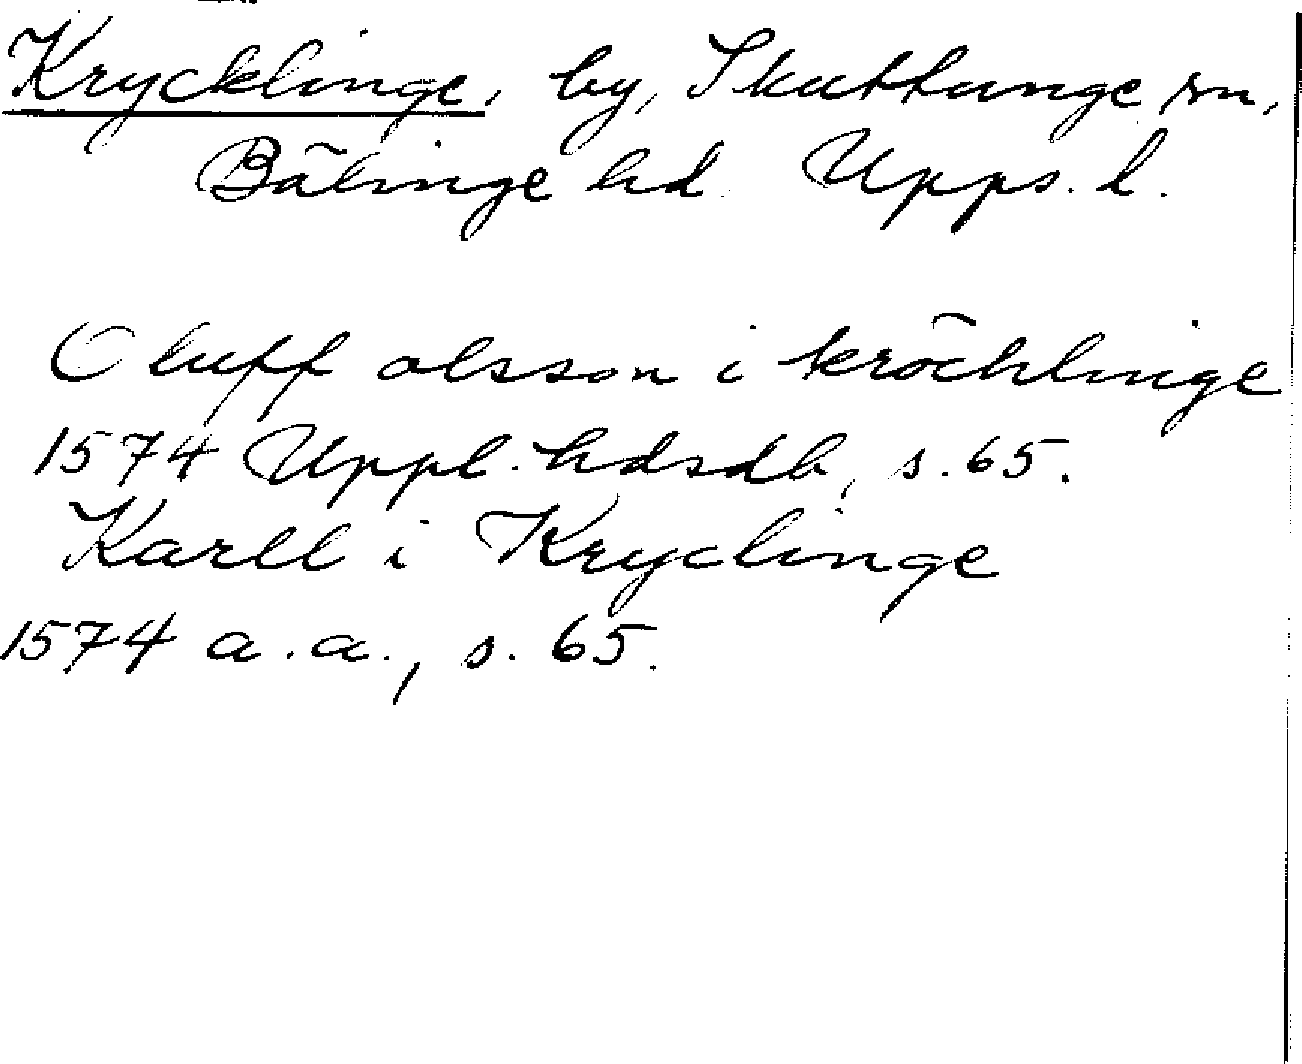 Krycklinge, by, Skuttunge sn,
Bälinge hd. Upps. l.
Oluff olsson i kröchlinge
1574 Uppl. hdsdb, s. 65.
Karll i Kryclinge
1574 a. a., s. 65.